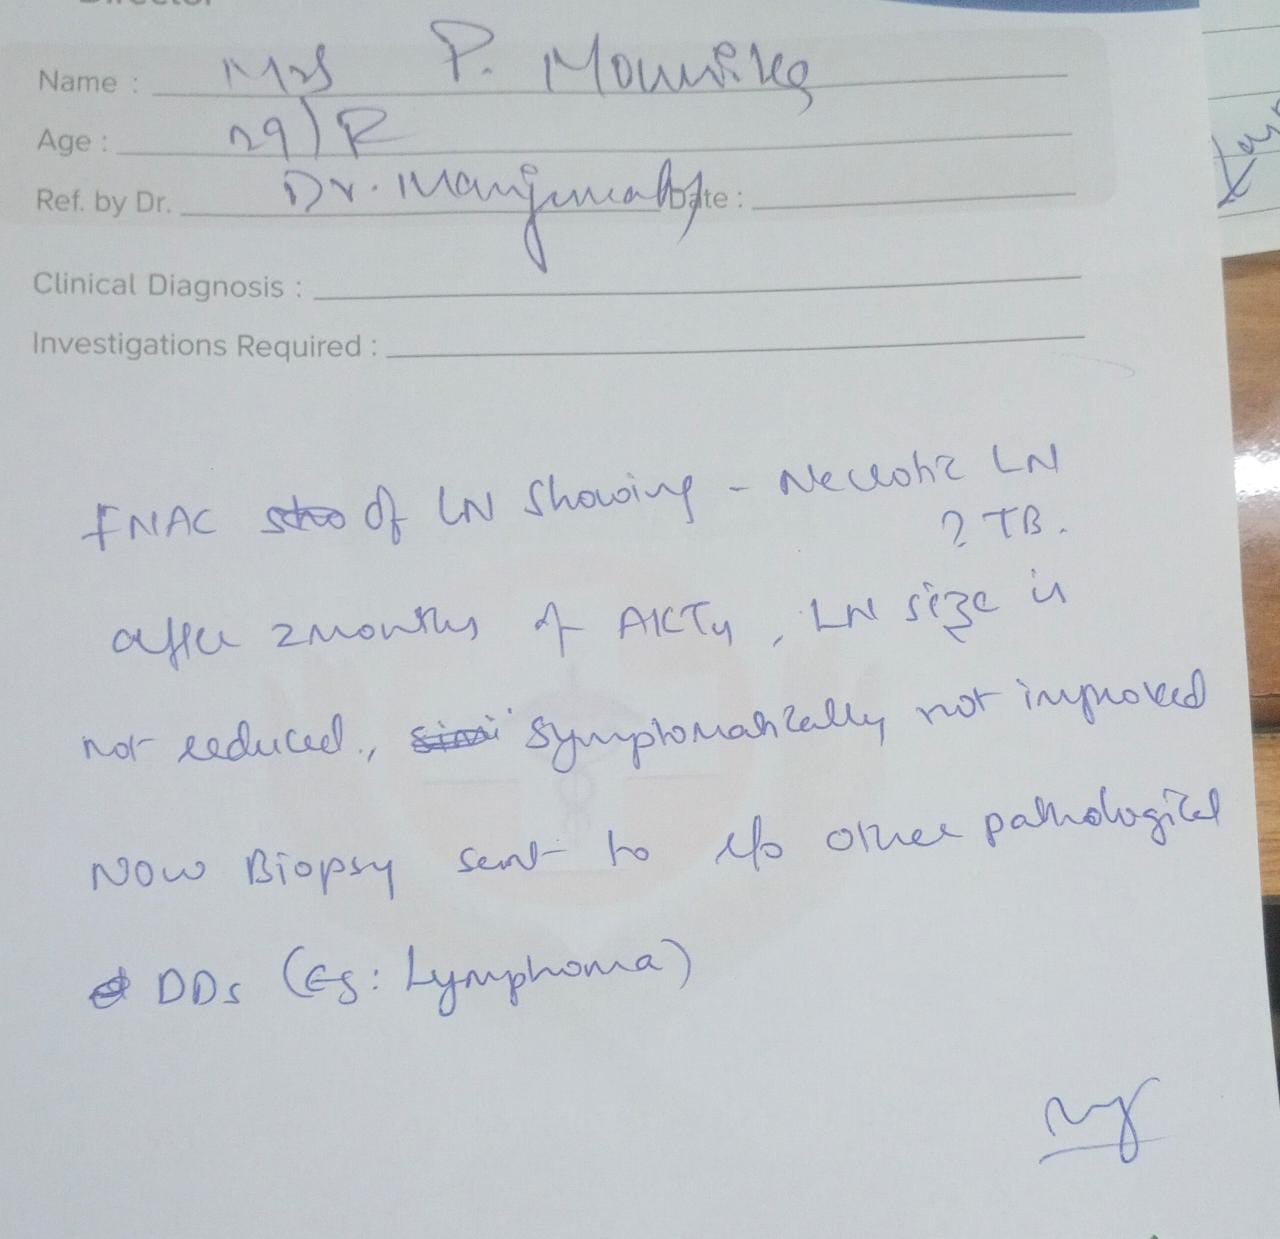 Name : Mrs P. Mounika
Age : 29/F
Ref. by Dr. Dr. Manjunath Date :
Clinical Diagnosis :
Investigations Required :
FNAC of LN showing - Necrotic LN
? TB.
after 2 months of AKT4, LN size is
not reduced, symptomatically not improved
Now Biopsy sent to r/o other pathological
DDs (Eg: Lymphoma)